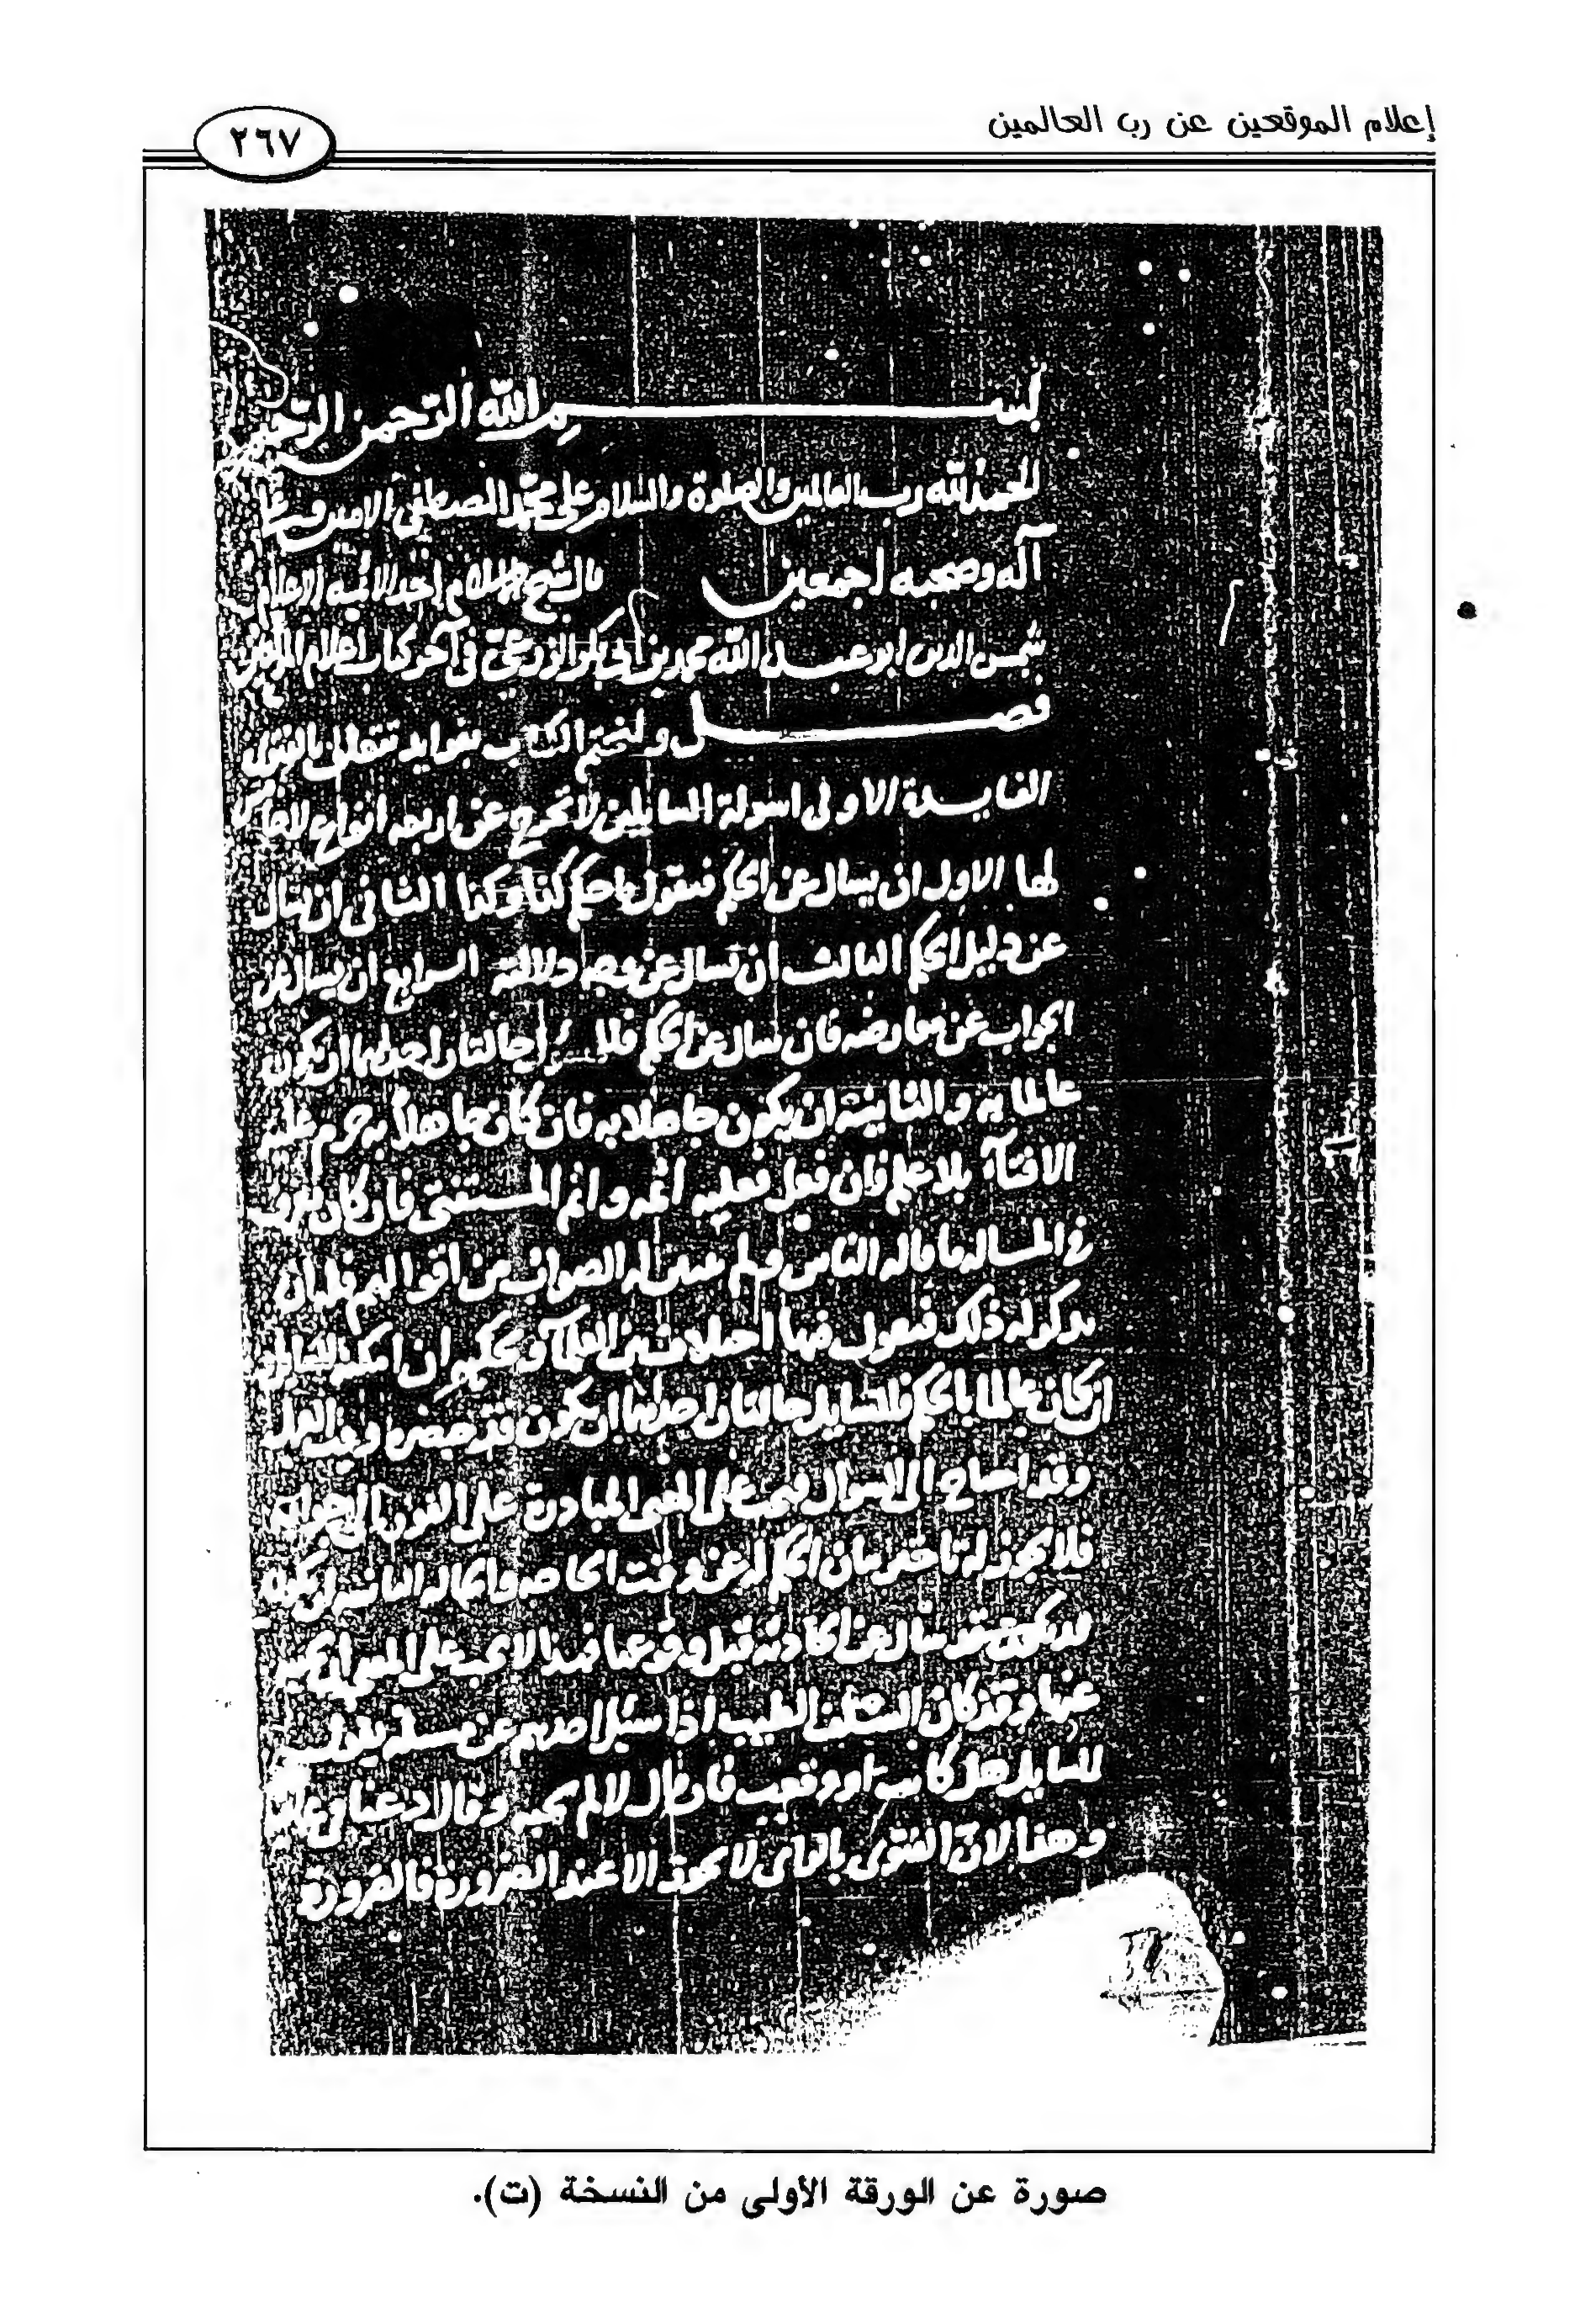 إعلام الموقعين عن رب العالمين
٢٦٧
بسم الله الرحمن الرحيم
الحمد لله رب العالمين والصلوة والسلام على محمد المصطفى الامين وعلى
آله وصحبه اجمعين قال الشيخ الامام احد الائمة الاعلام
شمس الدين ابو عبد الله محمد بن ابى بكر الزرعي في آخر كتاب اعلام الموقعين
فصل ولنختم الكتاب بفوايد تتعلق بالفتوى
الفايدة الاولى اسولة السايلين لا تخرج عن اربعه انواع لا خامس
لها الاول ان يسال عن الحكم فيقول ما حكم كذا وكذا الثانى ان يسال
عن دليل الحكم الثالث ان يسال عن وجه دلالته الرابع ان يسال عن
الجواب عن معارضه فان سال عن الحكم فللمسئول حالتان احداهما ان يكون
عالما به والثانية ان يكون جاهلا به فان كان جاهلا به حرم عليه
الافتآء بلا علم فان فعل فعليه اثمه واثم المستفتى فان كان يعرف
في المساله ما قاله الناس ولم يتبين له الصواب من اقوالهم فله ان
يذكر له ذلك فيقول فيها اختلاف بين العلمآء ويحكيه ان امكنه للسايل و
ان كان عالما بالحكم فللسايل حالتان احداهما ان يكون قد حضره وقت العمل
وقد احتاج الى السوال فيجب على المفتى المبادرة على الفور الى جوابه
فلا يجوز له تاخير بيان الحكم له عن وقت الحاجه والحاله الثانيه ان يكون
قد سال عن الحادثه قبل وقوعها فهذا لا يجب على المفتى ان يجيبه
عنها وقد كان السلف الطيب اذا سئل احدهم عن مسئلة يقول
للسايل هل كانت او وقعت فان قال لا لم يجبه وقال دعنا في عافية
وهذا لان الفتوى بالراى لا يجوز الا عند الضرورة فالضرورة
صورة عن الورقة الأولى من النسخة (ت).